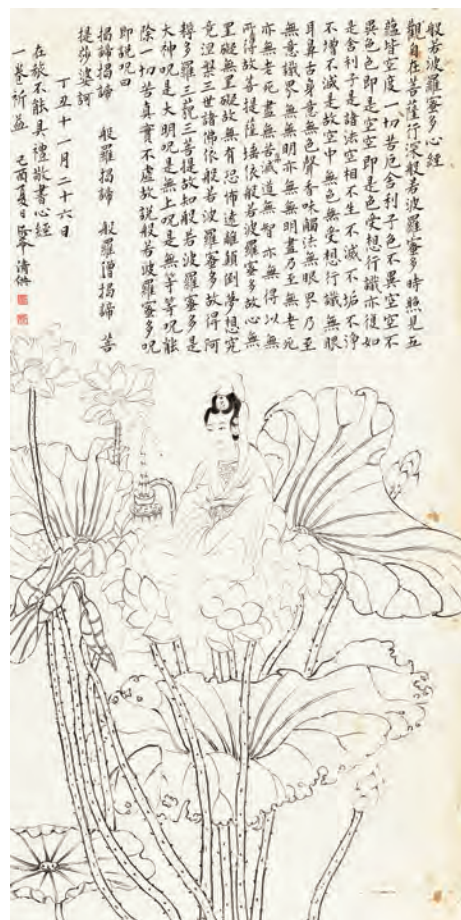 般若波羅蜜多心經
觀自在菩薩行深般若波羅蜜多時照見五
蘊皆空度一切苦厄舍利子色不異空空不
異色色即是空空即是色受想行識亦復如
是舍利子是諸法空相不生不滅不垢不淨
不增不減是故空中無色無受想行識無眼
耳鼻舌身意無色聲香味觸法無眼界乃至
無意識界無無明亦無無明盡乃至無老死
亦無老死盡無苦集滅道無智亦無得以無
所得故菩提薩埵依般若波羅蜜多故心無
罣礙無罣礙故無有恐怖遠離顛倒夢想究
竟涅槃三世諸佛依般若波羅蜜多故得阿
耨多羅三藐三菩提故知般若波羅蜜多是
大神呪是大明呪是無上呪是無等等呪能
除一切苦真實不虛故說般若波羅蜜多呪
即說呪曰
揭諦揭諦 般羅揭諦 般羅僧揭諦 菩
提莎婆訶
丁丑十一月二十六日
在旅不能具禮敬書心經
一卷祈益 己酉夏日 清供